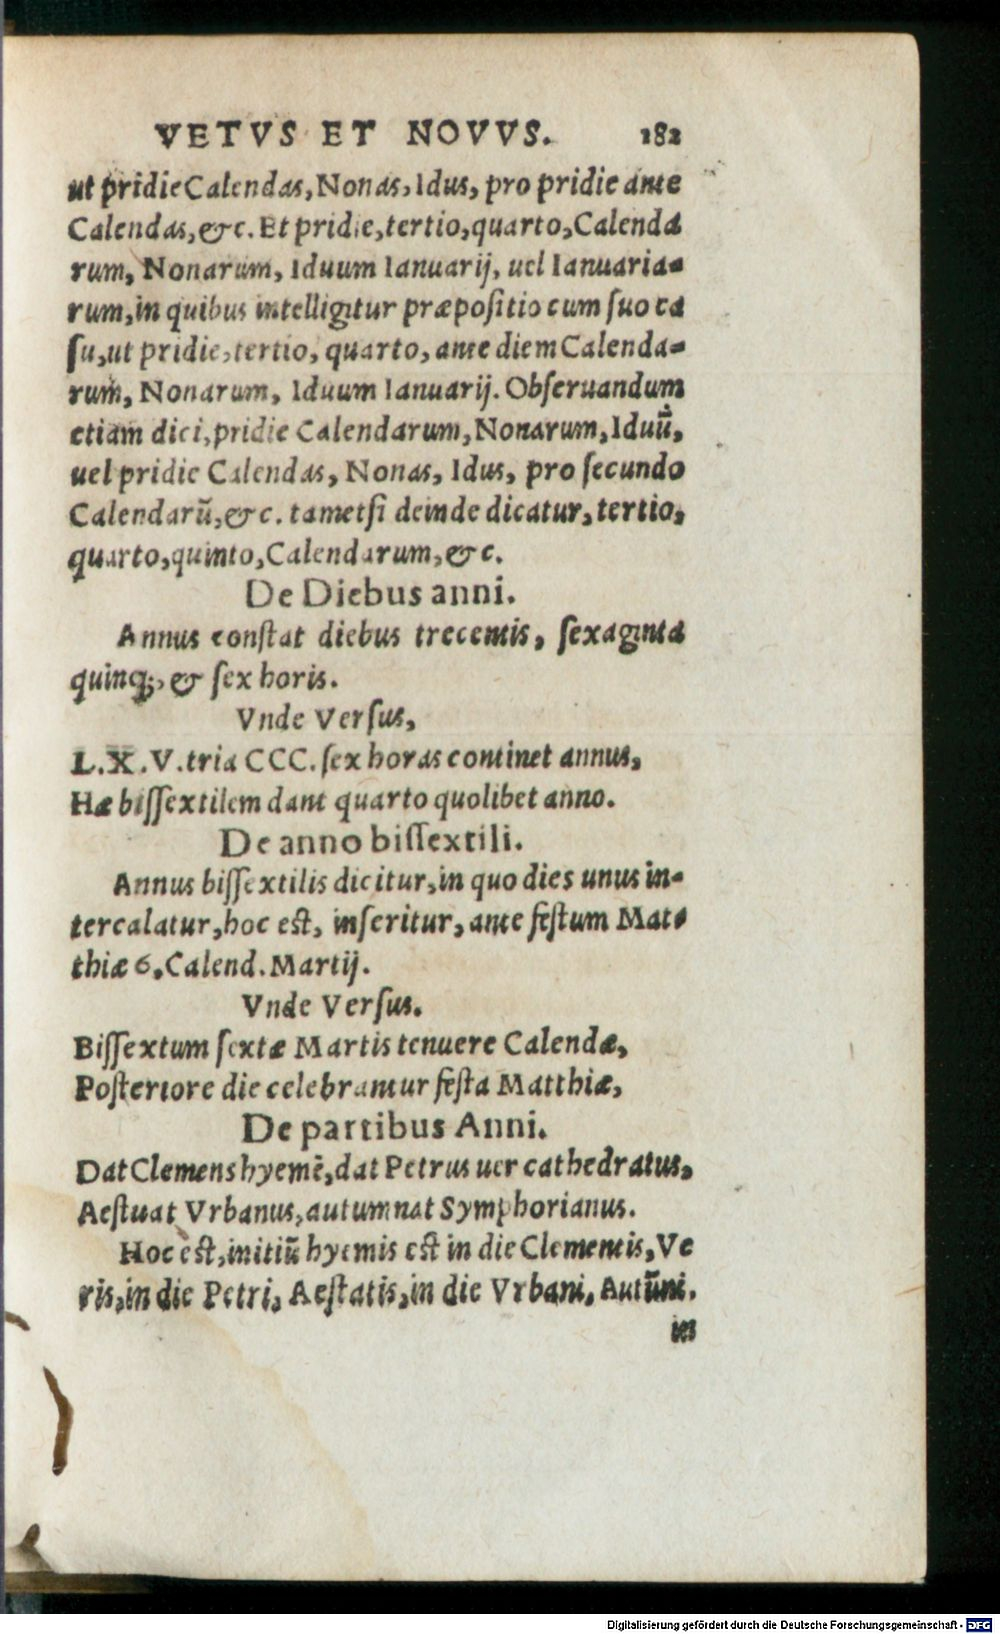 VETVS ET NOVVS. 182
ut pridie Calendas, Nonas, Idus, pro pridie ante
Calendas, &c. Et pridie, tertio, quarto, Calenda
rum, Nonarum, Iduum Ianuarij, uel Ianuaria-
rum, in quibus intelligitur præpositio cum suo ca
su, ut pridie, tertio, quarto, ante diem Calenda-
rum, Nonarum, Iduum Ianuarij. Obseruandum
etiam dici, pridie Calendarum, Nonarum, Iduũ,
uel pridie Calendas, Nonas, Idus, pro secundo
Calendarũ, &c. tametsi deinde dicatur, tertio,
quarto, quinto, Calendarum, &c.
De Diebus anni.
Annus constat diebus trecentis, sexaginta
quinq;, & sex horis.
Vnde Versus,
L.X.V. tria CCC. sex horas continet annus,
Hæ bissextilem dant quarto quolibet anno.
De anno bissextili.
Annus bissextilis dicitur, in quo dies unus in-
tercalatur, hoc est, inseritur, ante festum Mat-
thiæ 6. Calend. Martij.
Vnde Versus.
Bissextum sextæ Martis tenuere Calendæ,
Posteriore die celebrantur festa Matthiæ,
De partibus Anni.
Dat Clemens hyemẽ, dat Petrus uer cathedratus,
Aestuat Vrbanus, autumnat Symphorianus.
Hoc est, initiũ hyemis est in die Clementis, Ve
ris, in die Petri, Aestatis, in die Vrbani, Autũni.
in
Digitalisierung gefördert durch die Deutsche Forschungsgemeinschaft - DFG